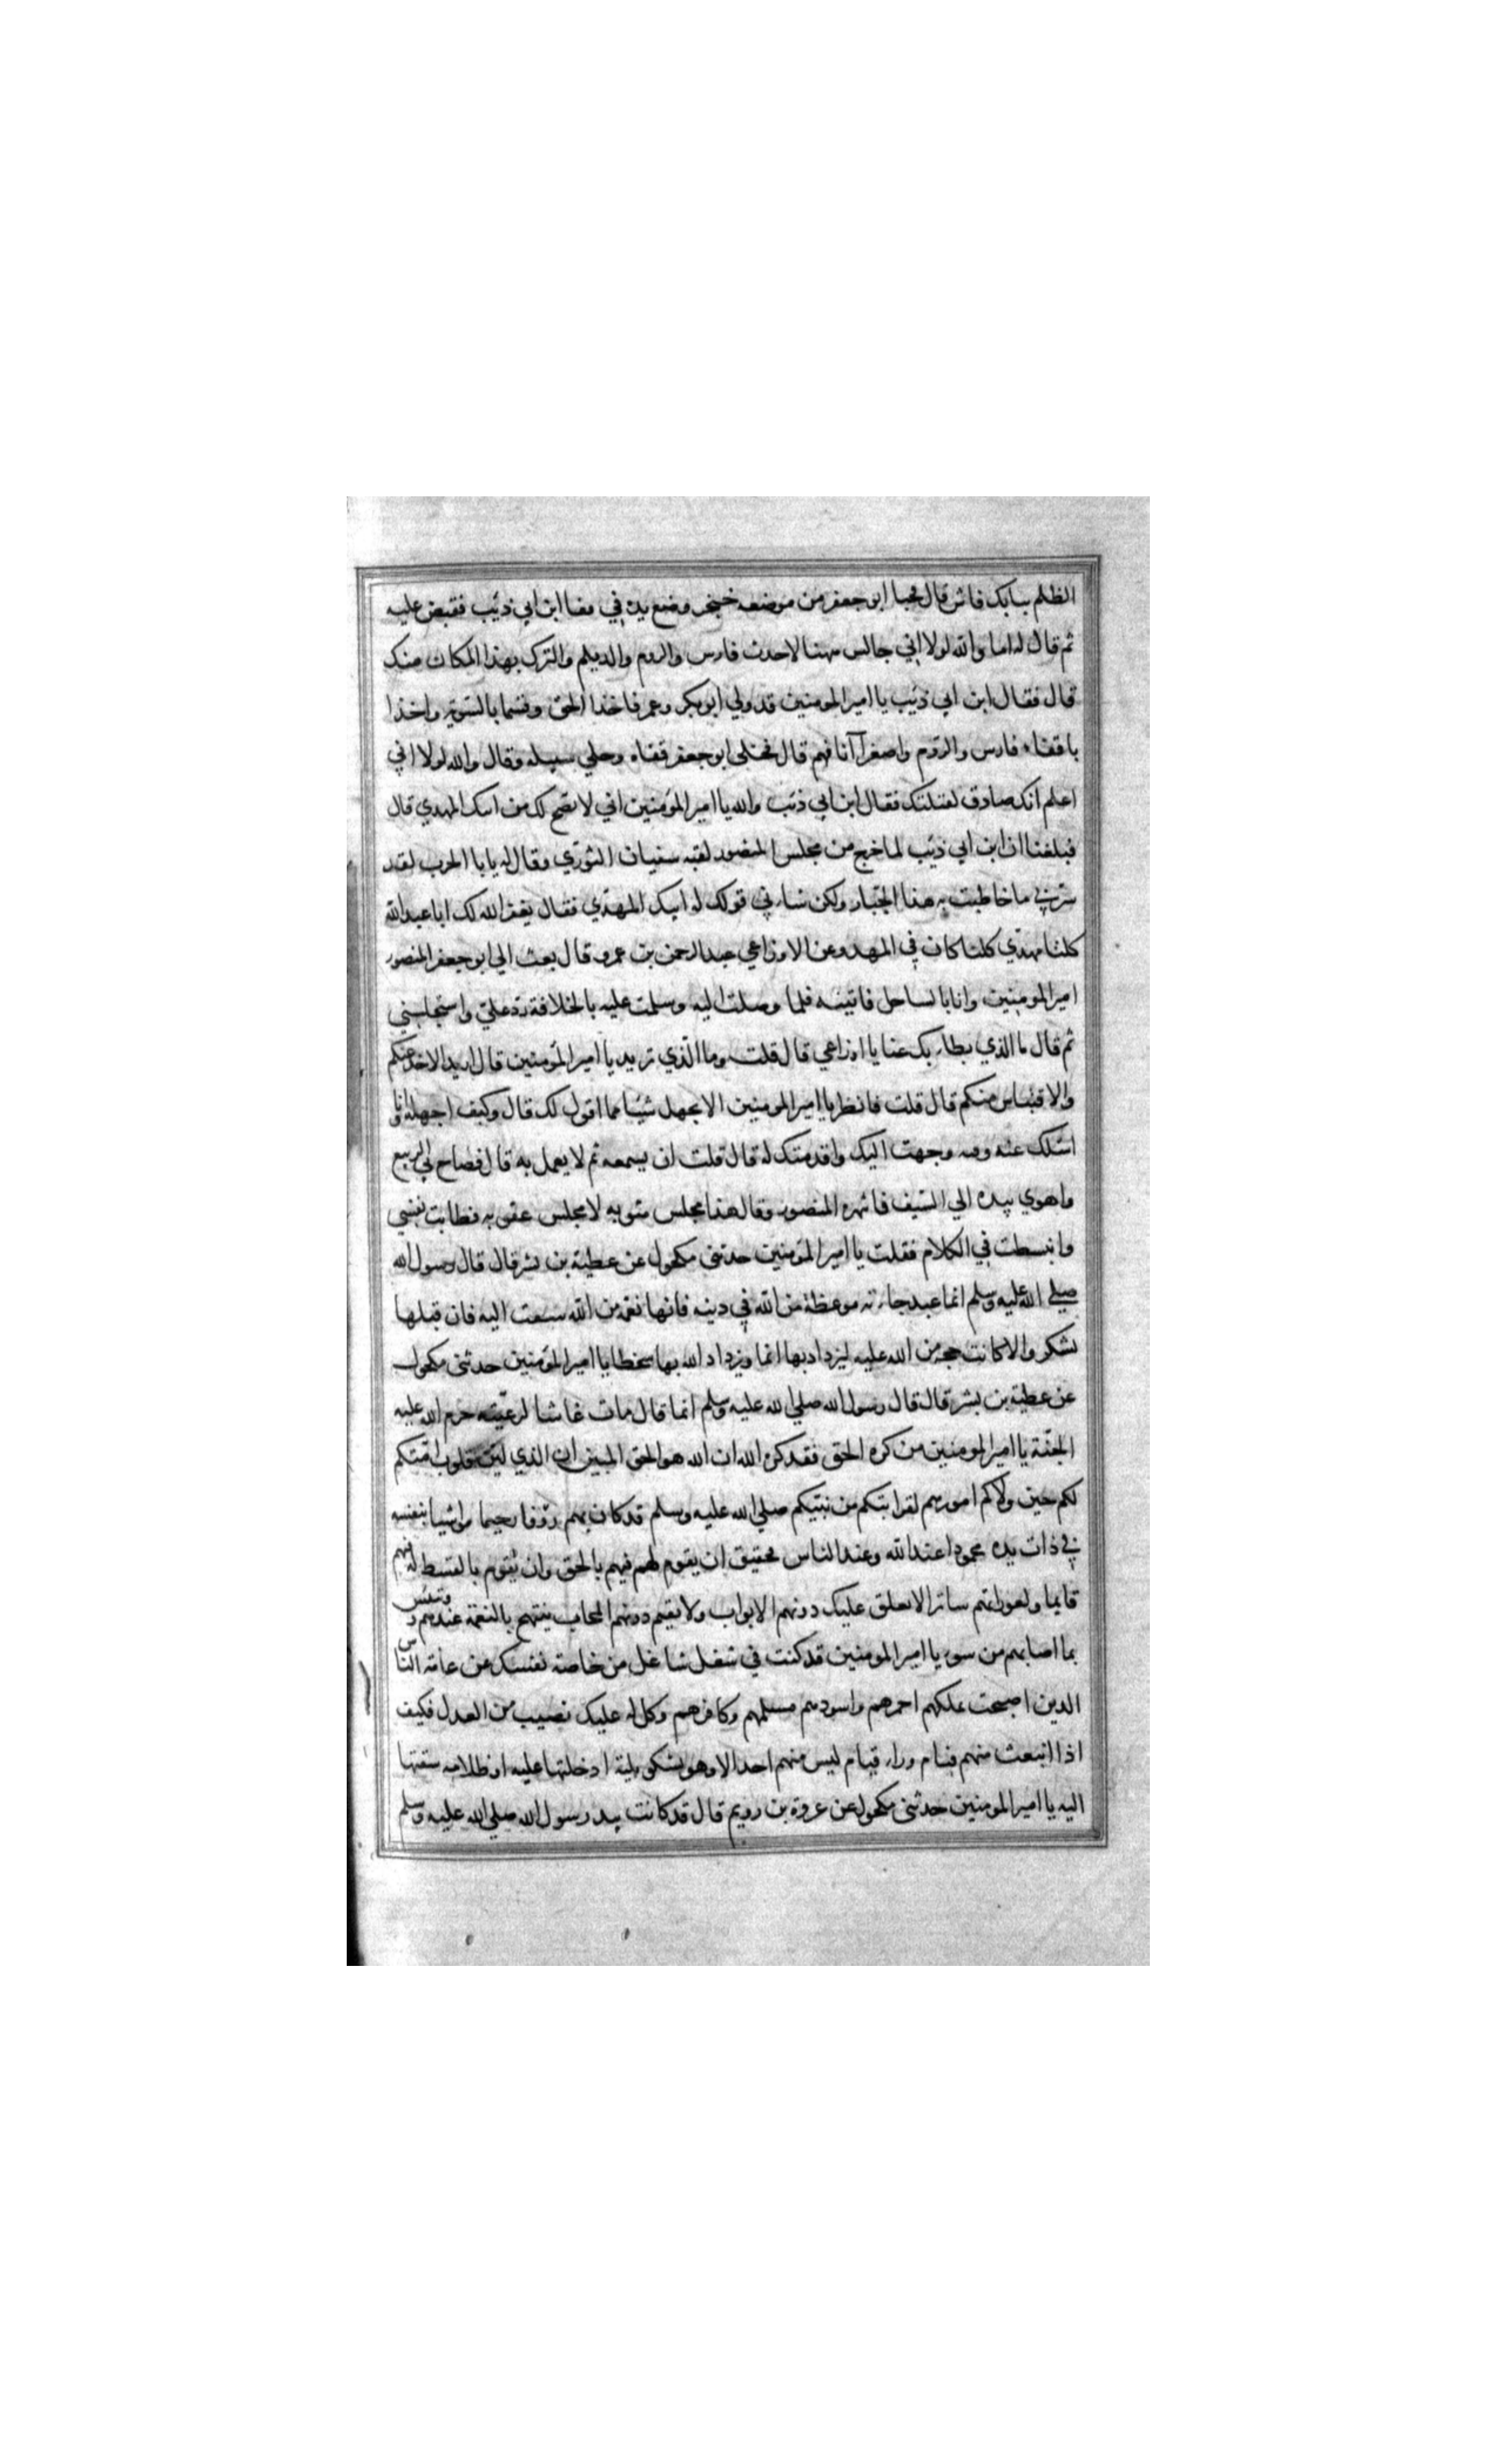 الظلم ببابك فاش قال فجا ابو جعفر من موضعه حتى وضع يده في قفا ابن ابي ذئب فقبض عليه
ثم قال له اما والله لولا اني جالس ههنا لاخذت فارس والروم والديلم والترك بهذا المكان منك
قال فقال ابن ابي ذئب يا امير المومنين قد ولي ابو بكر وعمر فاخذا الحق وقسما بالسوية واخذا
باقفاء فارس والروم واصغرا آنافهم قال فخلى ابو جعفر قفاه وخلي سبيله وقال والله لولا اني
اعلم انك صادق لقتلتك فقال ابن ابي ذئب والله يا امير المؤمنين اني لانصح لك من ابنك المهدي قال
فبلغنا ان ابن ابي ذئب لما خرج من مجلس المنصور لقيه سفيان الثوري وقال له يابا الحرث لقد
سرني ما خاطبت به هذا الجبار ولكن ساءني قولك له ابنك المهدي فقال يغفر الله لك ابا عبد الله
كلنا مهدي كلنا كان في المهد وعن الاوزاعي عبد الرحمن بن عمرو قال بعث الي ابو جعفر المنصور
امير المومنين وانا بالساحل فاتيته فلما وصلت اليه وسلمت عليه بالخلافة رد علي واستجلسني
ثم قال ما الذي بطا بك عنا يا اوزاعي قال قلت وما الذي تريد يا امير المؤمنين قال اريد الاخذ عنكم
والاقتباس منكم قال قلت فانظر يا امير المومنين الا تجهل شيئا مما اقول لك قال وكيف اجهله وانا
اسئلك عنه وفيه وجهت اليك واقدمتك له قال قلت ان يسمعه ثم لا يعمل به قال فصاح لي الربيع
واهوي بيده الي السيف فانهره المنصور وقال هذا مجلس مثوبه لا مجلس عقوبه فطابت نفسي
وانبسطت في الكلام فقلت يا امير المؤمنين حدثني مكحول عن عطية بن بشر قال قال رسول الله
صلي الله عليه وسلم انما عبد جاءته موعظة من الله في دينه فانها نعمة من الله سيقت اليه فان قبلها
بشكر والا كانت حجة من الله عليه ليزداد بها اثما ويزداد الله بها سخطا يا امير المؤمنين حدثني مكحول
عن عطية بن بشر قال قال رسول الله صلي الله عليه وسلم انما قال مات غاشا لرعيته حرم الله عليه
الجنة يا امير المومنين من كره الحق فقد كره الله ان الله هو الحق المبين ان الذي لين قلوب امتكم
لكم حين ولاكم امورهم لقرابتكم من نبيكم صلي الله عليه وسلم قد كان بهم رؤفا رحيما مواسيا بنفسه
في ذات يده محمودا عند الله وعند الناس فحقيق ان يقوم لهم فيهم بالحق وان يقوم بالقسط له فيهم
قايما ولعوراتهم ساترا لا تعلق عليك دونهم الابواب ولا تقيم دونهم الحجاب يبتهج بالنعمة عندهم وتبتئس
بما اصابهم من سوء يا امير المومنين قد كنت في شغل شاغل من خاصة نفسك عن عامة الناس
الذين اصبحت تملكهم احمرهم واسودهم مسلمهم وكافرهم وكل له عليك نصيب من العدل فكيف
اذا انبعث منهم فئام وراء فئام ليس منهم احد الا وهو يشكو بلية ادخلتها عليه او ظلامه سقتها
اليه يا امير المومنين حدثني مكحول عن عروة بن رويم قال قد كانت بيد رسول الله صلي الله عليه وسلم